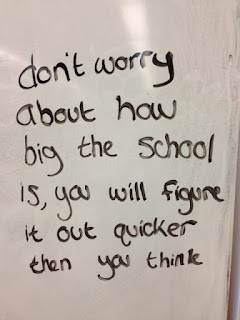 don't worry
about how
big the school
is, you will figure
it out quicker
then you think